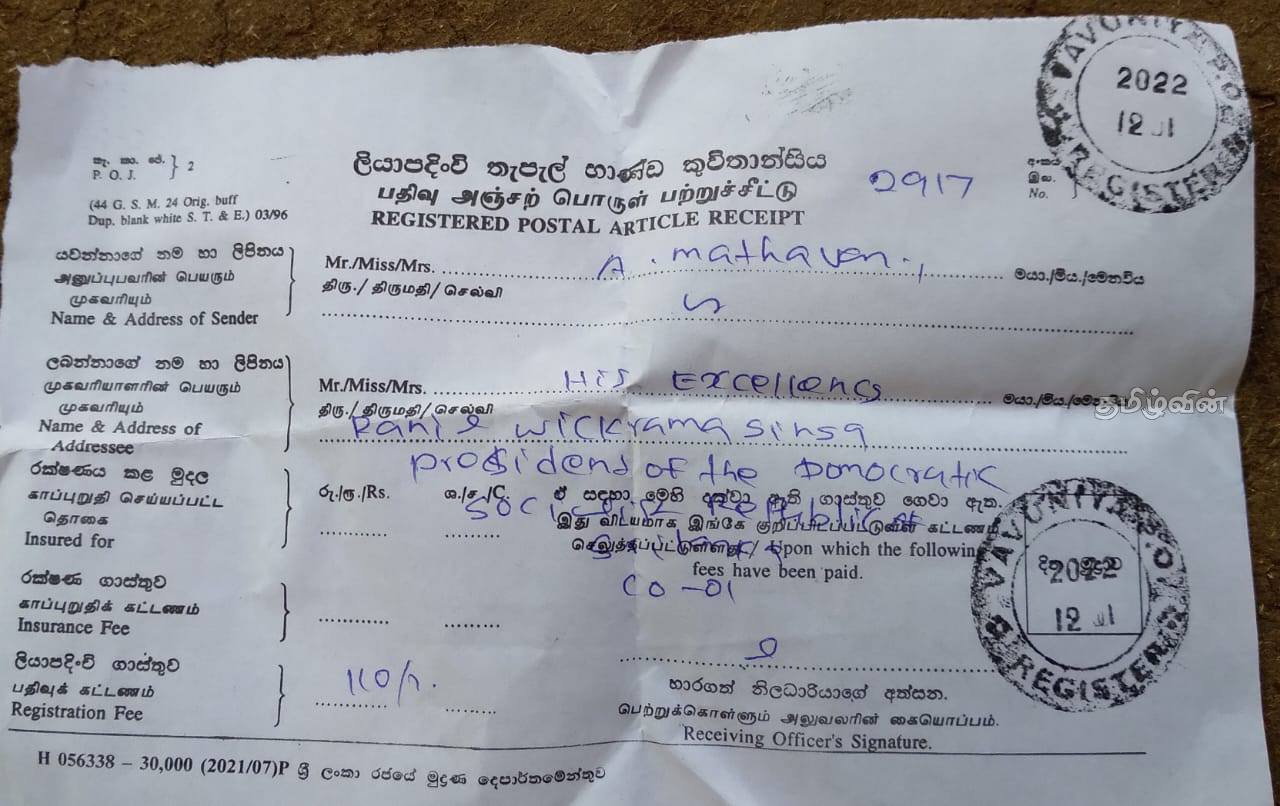 VAVUNIYA P.O.
2022
12 01
REGISTER
තැ. කා. පේ. } 2
P. O. J.
(44 G. S. M. 24 Orig. buff
Dup. blank white S. T. & E.) 03/96
ලියාපදිංචි තැපැල් භාණ්ඩ කුවිතාන්සිය
பதிவு அஞ்சற் பொருள் பற்றுச்சீட்டு
REGISTERED POSTAL ARTICLE RECEIPT
2917
අංකය
இல.
No.
යවන්නාගේ නම හා ලිපිනය
அனுப்புபவரின் பெயரும்
முகவரியும்
Name & Address of Sender
Mr./Miss/Mrs. A. mathaven., මයා./මිය./මෙනවිය
திரு./ திருமதி/ செல்வி
ලබන්නාගේ නම හා ලිපිනය
முகவரியாளரின் பெயரும்
முகவரியும்
Name & Address of
Addressee
Mr./Miss/Mrs. His Excellency මයා./මිය./
திரு./ திருமதி/செல்வி
தமிழ்வின்
Ranil wickramasinsa
president of the Domocratik
රක්ෂණය කළ මුදල
காப்புறுதி செய்யப்பட்ட
தொகை
Insured for
රු./ரூ./Rs. ශ./ச./C.
ඒ සඳහා මෙහි අත්වා ඇති ගාස්තුව ගෙවා ඇත
இது விடயமாக இங்கே குறிப்பிடப்பட்டுள்ள கட்டணம்
செலுத்தப்பட்டுள்ளது / Upon which the following
fees have been paid.
CO -01
රක්ෂණ ගාස්තුව
காப்புறுதிக் கட்டணம்
Insurance Fee
VAVUNIYA P.O.
2022
12 01
REGISTER
ලියාපදිංචි ගාස්තුව
பதிவுக் கட்டணம்
Registration Fee
110/-
භාරගත් නිලධාරියාගේ අත්සන.
பெற்றுக்கொள்ளும் அலுவலரின் கையொப்பம்.
Receiving Officer's Signature.
H 056338 – 30,000 (2021/07)P ශ්‍රී ලංකා රජයේ මුද්‍රණ දෙපාර්තමේන්තුව